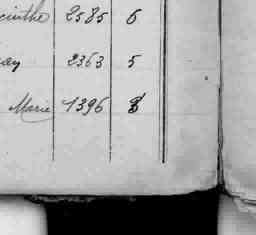 cinthe 2585 6
ay 2363 5
Marie 1396 8